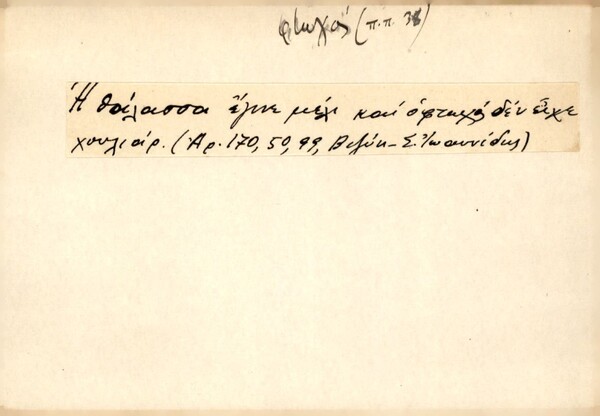 φτωχός (π.π. 38)
Ἡ θάλασσα ἔγινε μέλι καί ὁ φτωχός δέν εἶχε
χουλιάρ. (Ἀρ. 170, 50, 99, Βιζύη - Σ. Ἰωαννίδης)